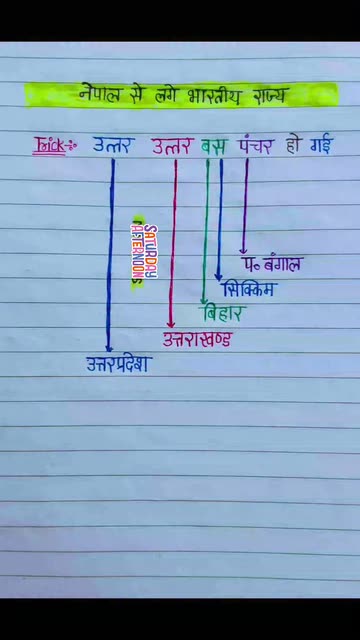 नेपाल से लगे भारतीय राज्य
Trick-: उत्तर उत्तर बस पंचर हो गई
SATURDAY
AFTERNOONS
प॰ बंगाल
सिक्किम
बिहार
उत्तराखण्ड
उत्तरप्रदेश